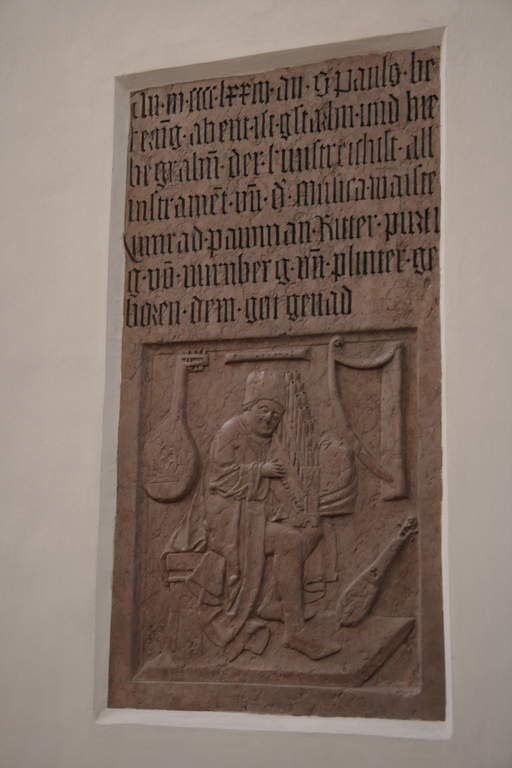 An·m·cccc·lxxiii·an·S·Pauls·be
kerūg·abent·ist·gstarbn·und·hie
begrabn̄·der·kunstreichist·all
instramēt·vn̄·d̄·Musica·maiste
Cunrad·pawman·Ritter·purti
g·vō·nurnberg·vn̄·plinter·ge
boren·dem·got genad